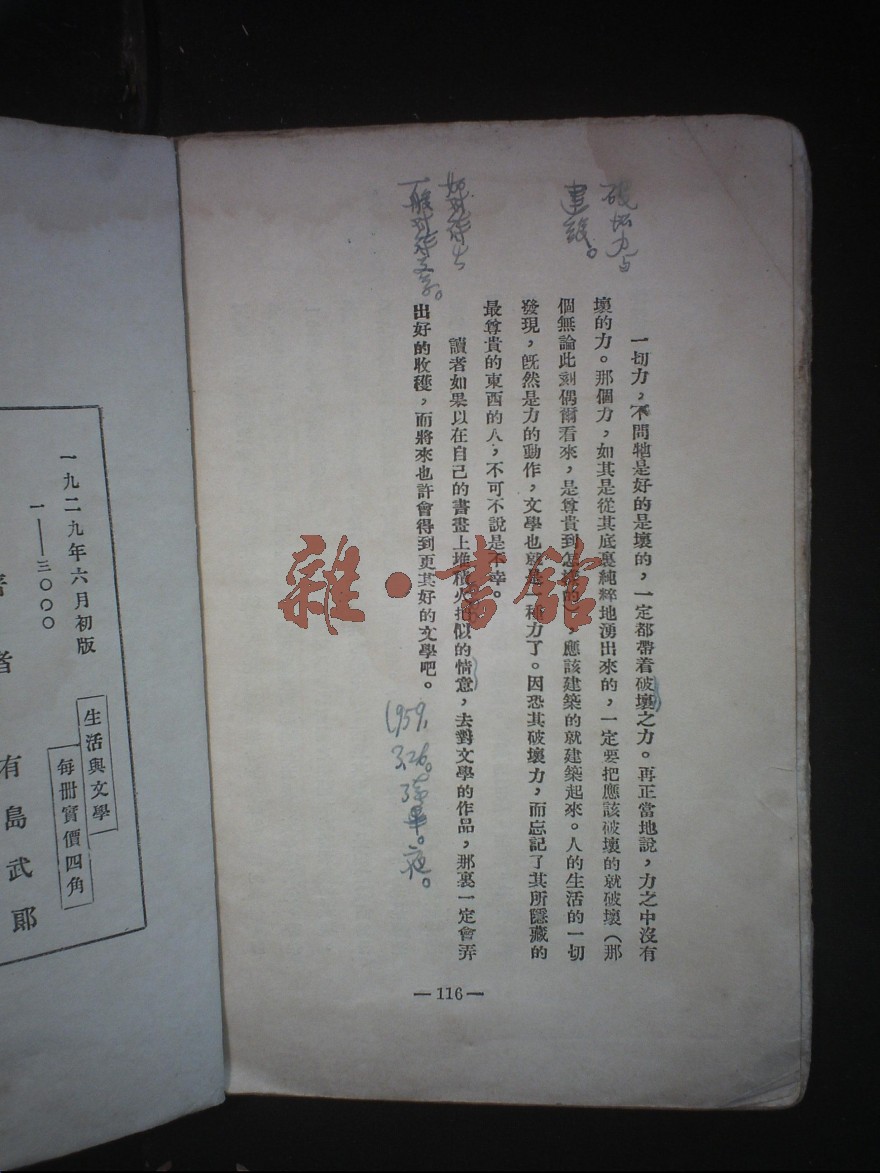 破坏力与
建設。
一切力，不問牠是好的是壞的，一定都帶着破壞之力。再正當地說，力之中沒有
壞的力。那個力，如其是從其底裏純粹地湧出來的，一定要把應該破壞的就破壞（那
個無論此刻偶爾看來，是尊貴到怎樣的），應該建築的就建築起來。人的生活的一切
發現，旣然是力的動作，文學也就是一種力了。因恐其破壞力，而忘記了其所隱藏的
最尊貴的東西的人，不可不說是不幸。
如何对待与
一般对待文学。
讀者如果以在自己的書盡上堆積火把似的情意，去對文學的作品，那裏一定會弄
出好的收穫，而將來也許會得到更其好的文學吧。
1959.
3.26。
讀畢。夜。
—116—
雜·書館
一九二九年六月初版
一——三〇〇〇
生活與文學
每册實價四角
著者 有島武郎